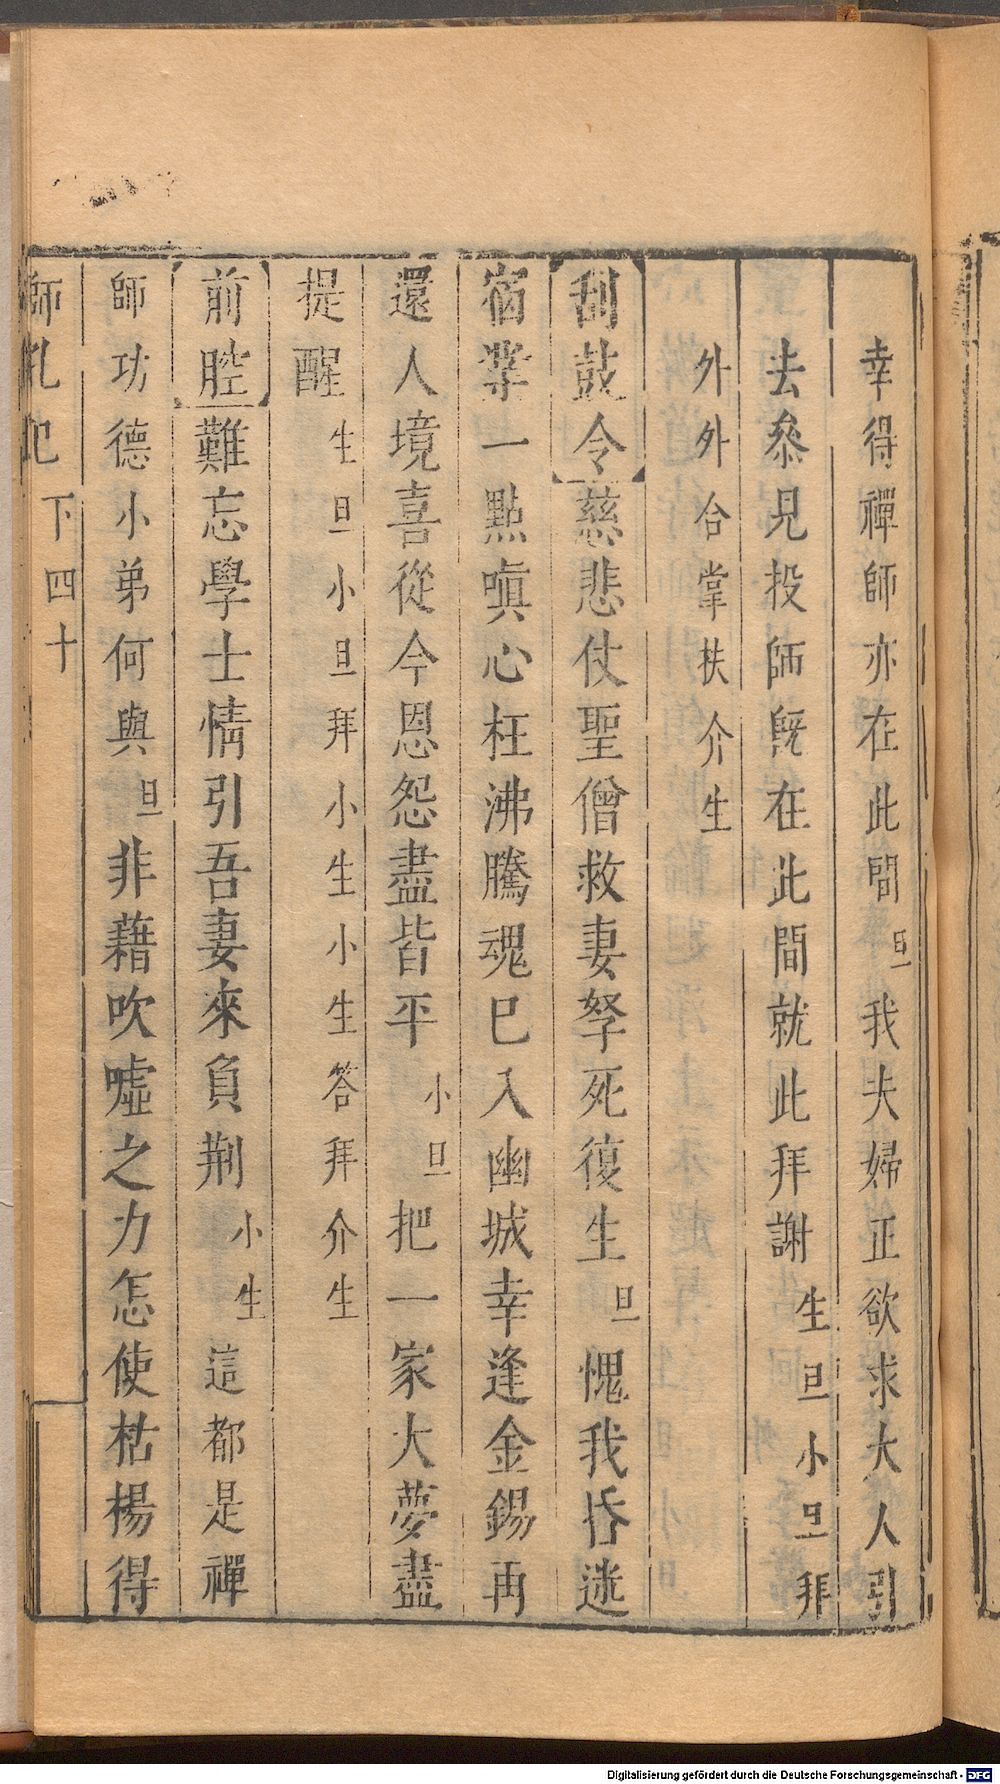 幸得禪師亦在此間旦我夫婦正欲求大人引
去叅見投師旣在此間就此拜謝生旦小旦拜
外外合掌扶介生
刮鼓令慈悲仗聖僧救妻孥死復生旦愧我昏迷
宿業一點嗔心枉沸騰魂已入幽城幸逢金錫再
還人境喜從今恩怨盡皆平小旦把一家大夢盡
提醒生旦小旦拜小生小生答拜介生
前腔難忘學士情引吾妻來負荆小生這都是禪
師功德小弟何與旦非藉吹噓之力怎使枯楊得
獅吼記 下四十
Digitalisierung gefördert durch die Deutsche Forschungsgemeinschaft - DFG